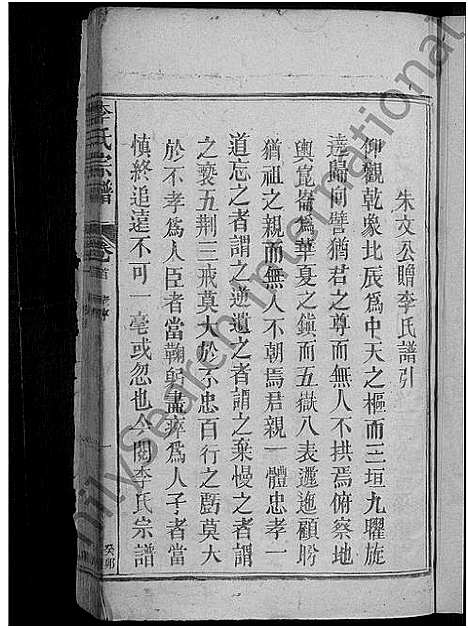 朱文公贈李氏譜引
仰觀乾象北辰為中天之樞而三垣九曜旋
遶歸向譬猶君之尊而無人不拱焉俯察地
輿崑崙為華夏之鎮而五嶽八表邐迤顧盻
猶祖之親而無人不朝焉君親一體忠孝一
道忘之者謂之逆遺之者謂之棄慢之者謂
之褻五刑三戒莫大於不忠百行之虧莫大
於不孝為人臣者當鞠躬盡瘁為人子者當
慎終追遠不可一毫或忽也今閱李氏宗譜
李氏宗譜
卷首
癸卯
FamilySearch International